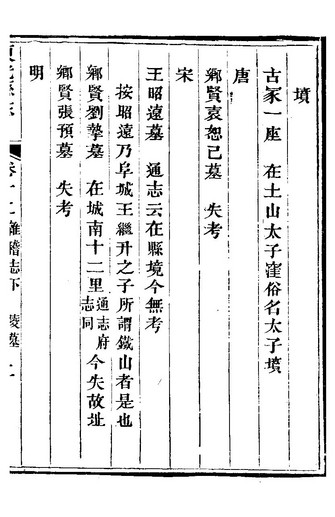 墳
古冢一座 在土山太子窪俗名太子墳
唐
鄉賢袁恕己墓 失考
宋
王昭遠墓 通志云在縣境今無考
按昭遠乃阜城王繼升之子所謂鐵山者是也
鄉賢劉摯墓 在城南十二里通志府志同今失故址
鄉賢張預墓 失考
明
雜稽志下 陵墓